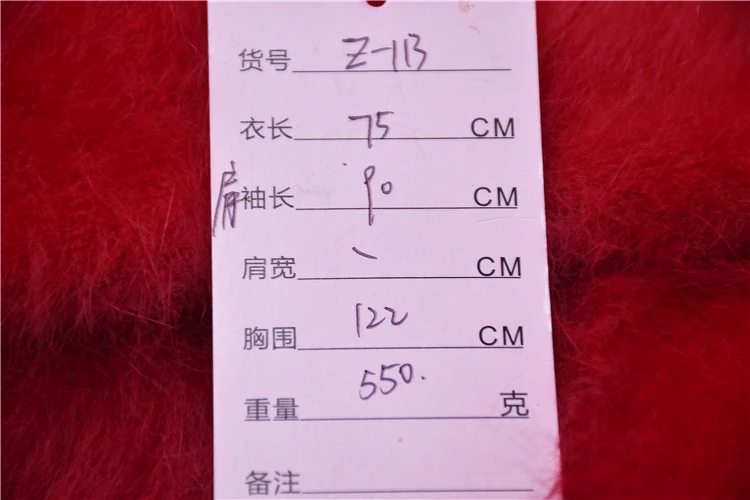 货号 Z-113
衣长 75 CM
肩袖长 90 CM
肩宽 - CM
胸围 122 CM
重量 550. 克
备注